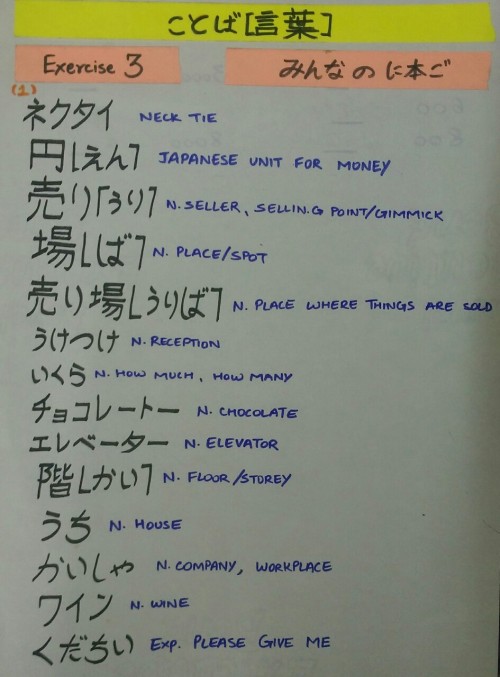 ことば[言葉]
Exercise 3 みんな の に本ご
(1)
ネクタイ NECK TIE
円[えん] JAPANESE UNIT FOR MONEY
売り[うり] N. SELLER, SELLING POINT/GIMMICK
場[ば] N. PLACE/SPOT
売り場[うりば] N. PLACE WHERE THINGS ARE SOLD
うけつけ N. RECEPTION
いくら N. HOW MUCH, HOW MANY
チョコレートー N. CHOCOLATE
エレベーター N. ELEVATOR
階[かい] N. FLOOR/STOREY
うち N. HOUSE
かいしゃ N. COMPANY, WORKPLACE
ワイン N. WINE
くだちい Exp. PLEASE GIVE ME